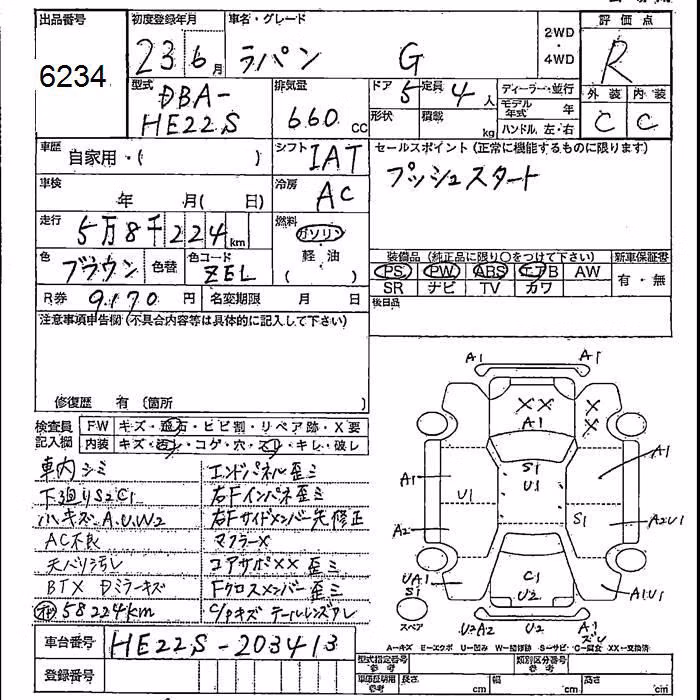 出品番号 初度登録年月 車名・グレード 2WD・4WD 評価点
6234 23 6月 ラパン G R
型式 DBA-HE22S 排気量 660 CC ドア 5 定員 4人 ディーラー・並行 外装 内装
形状 積載 kg モデル年式 年 C C
ハンドル 左・右
車歴 自家用・( ) シフト IAT セールスポイント(正常に機能するものに限ります)
プッシュスタート
車検 年 月( 日) 冷房 AC
走行 5万8千224km 燃料 ガソリン
軽・油
( )
色 ブラウン 色替 色コード ZEL
装備品(純正品に限り○をつけて下さい) 新車保証書
PS PW ABS エアB AW 有・無
SR ナビ TV カワ
R券 9170円 名変期限 月 日 後日品
注意事項申告欄(不具合内容等は具体的に記入して下さい)
修復歴 有 〔箇所 〕
検査員記入欄 FW キズ・飛石・ヒビ割・リペア跡・X要
内装 キズ・汚れ・コゲ・穴・スリ・キレ・破レ
車内シミ エンドパネル歪ミ
下廻りS2C1 右Fインパネ歪ミ
小キズA.U.W2 右Fサイドメンバー先修正
AC不良 マフラーX
天バリ汚レ コアサポXX 歪ミ
BTX Dミラーキズ Fクロスメンバー歪ミ
58224km C/Pキズ テールレンズワレ
車台番号 HE22S-203413
登録番号
A1 A1
XX XX
A1
S1
U1
A1 U1 A1
A2 S1 A2U1
UA1 C1 A1U1
S1 U2
スペア U2A2 U2 A1
A-キズ E-エクボ U-凹み W-補修跡 S-サビ C-腐食 XX-交換済
型式指定番号 参考 類別区分番号 参考
車体証明用 参考 長さ cm 幅 cm 高さ cm